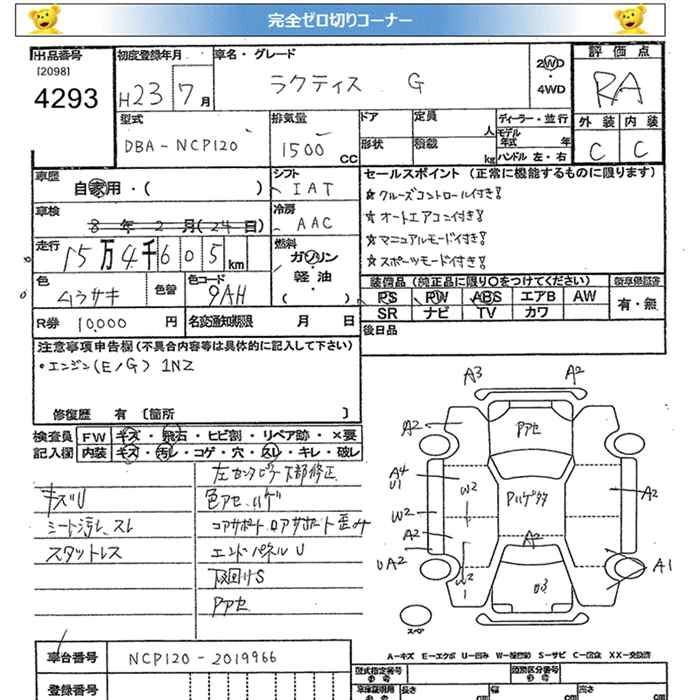 完全ゼロ切りコーナー
出品番号 初度登録年月 車名・グレード 2WD 評価点
[2098]
4293 H23 7月 ラクティス G ・4WD RA
型式 排気量 ドア 定員 人 ディーラー・並行 外装 内装
DBA-NCP120 1500 CC 形状 積載 kg モデル年式 年 ハンドル 左・右 C C
車歴 自家用・( ) シフト IAT セールスポイント (正常に機能するものに限ります)
車検 8年2月(24日) 冷房 AAC ☆クルーズコントロール付き!
☆オートエアコン付き!
走行 15万4千605km 燃料 ガソリン・軽油・( ) ☆マニュアルモード付き!
☆スポーツモード付き!
色 ムラサキ 色替 色コード 9AH 装備品 (純正品に限り〇をつけてください) 新車保証書
PS PW ABS エアB AW 有・無
SR ナビ TV カワ
R券 10,000 円 名変通知期限 月 日 後日品
注意事項申告欄(不具合内容等は具体的に記入して下さい)
・エンジン(E/G) 1NZ
修復歴 有 [箇所 ]
検査員 FW キズ・飛石・ヒビ割・リペア跡・×要
記入欄 内装 キズ・汚レ・コゲ・穴・スレ・キレ・破レ
左センタピラー下部修正
キズU 色アセ、ハゲ
シート汚レ、スレ コアサポート ロアサポート歪み
スタットレス エンドパネルU
下回りS
Pアセ
A3 A2
A2 Pアセ
A4
U1 W2 Pハゲタタ A2
W2
A2 A2
UA2 W2 A1
1
スペア
A-キズ E-エクボ U-凹み W-補修跡 S-サビ C-腐食 XX-交換済
車台番号 NCP120-2019966 型式指定番号 類別区分番号
登録番号 長さ cm 幅 cm 高さ cm